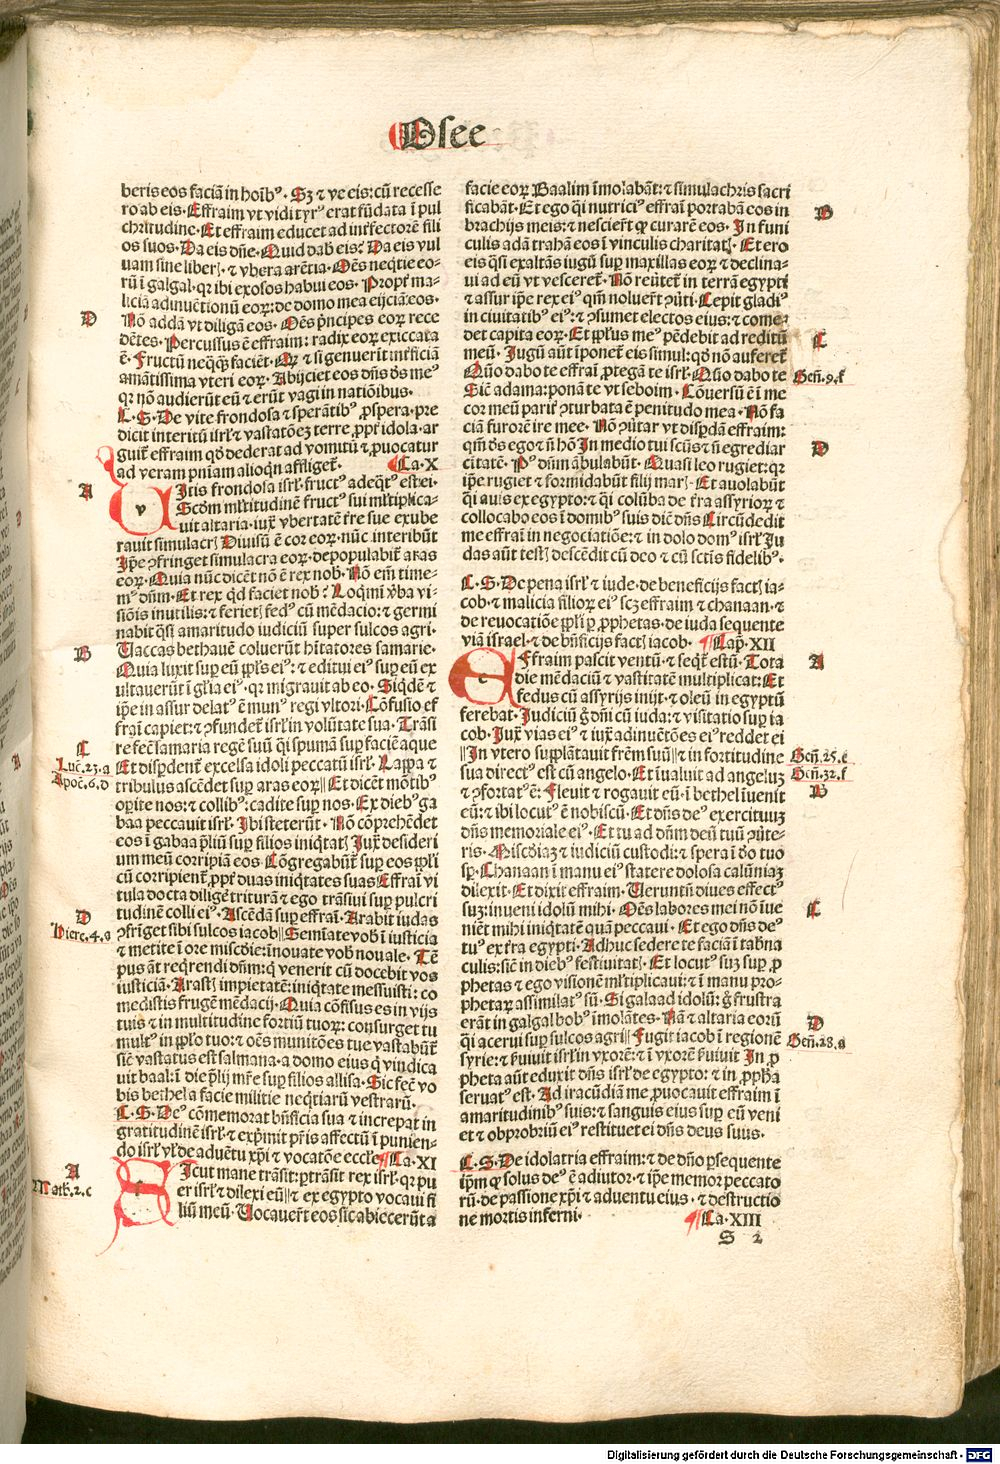 Osee
beris eos faciā in hoīb⁹. Sꝫ ⁊ ve eis: cū recesse
ro ab eis. Effraim vt vidi tyr⁹ erat fūdata ī pul
chritudine. Et effraim educet ad intʼfectorē fili
os suos. Da eis dn̄e. Quid dab eis? Da eis vul
uam sine liberꝭ. ⁊ vbera arētia. Oēs neq̄tie eo-
rū ī galgal. qꝛ ibi exosos habui eos. Propt̄ ma-
liciā adinuētionū eoꝝ: de domo mea eijciā eos.
Nō addā vt diligā eos. Oēs p̄ncipes eoꝝ rece
dētes. Percussus ē effraim: radix eoꝝ exiccata
ē. Fructū neq̄q̄ faciēt. Qꝛ ⁊ si genuerīt intʼficiā
amātissima vteri eoꝝ. Abijciet eos dn̄s dʼs me⁹
qꝛ nō audierūt eū ⁊ erūt vagi in natiōibus.
C. S. De vite frondosa ⁊ sperātib⁹ ꝓspera. pre
dicit interitū isrl ⁊ vastatōeꝫ terre ꝓpt̄ idola. ar
guit̄ effraim qʼ dederat ad vomitū ⁊ ꝓuocatur
ad veram pn̄iam alioqn affliget̄. ¶ Ca. X
A
v Itis frondosa isrl. fruct⁹ adeq̄t⁹ est ei.
Scdm ml̄titudinē fruct⁹ sui ml̄tiplica-
uit altaria. iux̄ vbertatē t̄re sue exube
rauit simulacrꝭ Diuisū ē cor eoꝝ. nūc interibūt
Ip̄e ꝯfringet simulacra eoꝝ. depopulabit̄ aras
eoꝝ. Quia nūc dicēt nō ē rex nob̄. Nō em̄ time-
m⁹ dn̄m. Et rex qd faciet nob̄? Loq̄mi v̄ba vi-
siōis inutilis: ⁊ ferietꝭ fed⁹ cū mēdacio: ⁊ germi
nabit q̄si amaritudo iudiciū super sulcos agri.
B
Vaccas bethauē coluerūt hītatores samarie.
Quia luxit suꝑ eū ppl̄s ei⁹: ⁊ editui ei⁹ suꝑ eū ex
ultauerūt ī gl̄ia ei⁹. qꝛ migrauit ab eo. Siqdē ⁊
ip̄e in assur delat⁹ ē mun⁹ regi vltori. Cōfusio ef
fraī capiet: ⁊ ꝯfundet̄ isrl in volūtate sua. Trāsi
C
re fec̄ samaria regē suū q̄si spumā suꝑ faciē aque
Luc̄. 23. a
Et disꝑdent̄ excelsa idoli peccatū isrl. Lappa ⁊
Apoc̄. 6. d
tribulus ascēdet suꝑ aras eoꝝ ‖ Et dicēt mōtib⁹
oꝑite nos: ⁊ collib⁹: cadite suꝑ nos. Ex dieb⁹ ga
baa peccauit isrl. Ibi steterūt. Nō cōprehēdet
eos ī gabaa p̄liū suꝑ filios iniq̄tatꝭ Jux̄ desideri
um meū corripiā eos Cōgregabūt̄ suꝑ eos ppl̄i
cū corripient̄ ꝓpt̄ duas iniq̄tates suas Effraī vi
tula docta diligē triturā ⁊ ego trāsiui suꝑ pulcri
D
tudinē colli ei⁹. Ascēdā suꝑ effraī. Arabit iudas
Hierc̄. 4. a
ꝯfrīget sibi sulcos iacob ‖ Semīate vob̄ ī iusticia
⁊ metite ī ore miscdie: īnouate vob̄ nouale. Tē
pus āt req̄rendi dn̄m: q̄ venerit cū docebit vos
iusticiā. Arastꝭ impietatē: iniq̄tate messuisti: co
medistis frugē mēdacij. Quia cōfisus es in vijs
tuis ⁊ in multitudine fortiū tuoꝝ: consurget tu
mult⁹ in pplo tuo: ⁊ oēs munitōes tue vastabūt̄
sic̄ vastatus est salmana. a domo eius q̄ vindica
uit baal: ī die p̄lij mr̄e suꝑ filios allisa. Sic fec̄ vo
bis bethel a facie milicie neq̄tiarū vestrarū.
C. S. De⁹ cōmemorat bn̄ficia sua ⁊ increpat in
gratitudinē isrl. ⁊ exp̄mit pr̄is affectū ī punien-
do isrl. vlde aduētu xp̄i ⁊ vocatōe eccl̄e ¶ Ca. XI
A
Math. 2. c
s Icut mane trāsit: ꝑtrāsit rex isrl. qꝛ pu
er isrl ⁊ dilexi eū ‖ ⁊ ex egypto vocaui fi
liū meū. Vocauer̄t eos sic abiecerūt a
facie eoꝝ Baalim īmolabāt: ⁊ simulachris sacri
B
ficabāt. Et ego q̄i nutrici⁹ effraī portabā eos in
brachijs meis: ⁊ nescier̄t qꝙ curarē eos. In funi
culis adā trahā eos ī vinculis charitatꝭ. Et ero
eis q̄si exaltās iugū suꝑ maxillas eoꝝ ⁊ declina-
ui ad eū vt vesceret̄. Nō reūtet̄ in terrā egypti
⁊ assur ip̄e rex ei⁹ qm̄ noluer̄t ꝯūti. Cepit gladi⁹
in ciuitatib⁹ ei⁹: ⁊ ꝯsumet electos eius: ⁊ come
C
det capita eoꝝ. Et ppl̄us me⁹ pēdebit ad reditū
meū. Jugū aūt īponet̄ eis simul: qʼ nō auferet̄
Gen̄. 9. f
Quō dabo te effraī ꝓtegā te isrl. Quō dabo te
Sic̄ adama: ponā te vt seboim. Cōuersū ē ī me
cor meū parit̄ ꝯturbata ē penitudo mea. Nō fa
ciā furorē ire mee. Nō ꝯūtar vt disꝑdā effraim:
D
qm̄ dʼs ego ⁊ n̄ hō In medio tui sctūs ⁊ n̄ egrediar
citatē. P⁹ dn̄m ābulabūt. Quasi leo rugiet: qꝛ
ip̄e rugiet ⁊ formidabūt filij marꝭ. Et auolabūt
q̄i auis ex egypto: ⁊ q̄i colūba de t̄ra assyrioꝝ ⁊
collocabo eos ī domib⁹ suis dic̄ dn̄s Circūdedit
me effraī in negociatiōe: ⁊ in dolo dom⁹ isrl Ju
das aūt testꝭ descēdit cū deo ⁊ cū sctīs fidelib⁹.
C. S. De pena isrl ⁊ iude. de beneficijs factꝭ ia-
cob. ⁊ malicia filioꝝ ei⁹ scꝫ effraim ⁊ chanaan. ⁊
de reuocatiōe ppl̄i ꝑ ꝓphetas. de iuda sequente
viā israel. ⁊ de bn̄ficijs factꝭ iacob. ¶ Cap̄. XII
A
e Ffraim pascit ventū ⁊ seq̄t̄ estū. Tota
die mēdaciū ⁊ vastitatē multiplicat: Et
fedus cū assyrijs inijt. ⁊ oleū in egyptū
ferebat. Judiciū g̊ dn̄i cū iuda: ⁊ visitatio suꝑ ia
cob. Jux̄ vias ei⁹ ⁊ iux̄ adinuētōes ei⁹ reddet ei
Gen̄. 25. e
‖ In vtero supplātauit frēm suū ‖ ⁊ in fortitudine
Gen̄. 32. f
sua direct⁹ est cū angelo. Et īualuit ad angeluꝫ
B
⁊ ꝯfortat⁹ ē: Fleuit ⁊ rogauit eū. ī bethel īuenit
eū: ⁊ ibi locut⁹ ē nobiscū. Et dn̄s de⁹ exercituuꝫ
dn̄s memoriale ei⁹. Et tu ad dn̄m deū tuū ꝯūte-
ris. Miscdiaꝫ ⁊ iudiciū custodi: ⁊ spera ī dʼo tuo
sꝑ. Chanaan ī manu ei⁹ statere dolosa calūniaꝫ
dilexit. Et dixit effraim. Veruntū diues effect⁹
C
suꝫ: inueni idolū mihi. Oēs labores mei nō īue
niēt mihi iniq̄tatē quā peccaui. Et ego dn̄s de⁹
tu⁹ ex t̄ra egypti. Adhuc sedere te faciā ī tab̄na
culis: sic̄ in dieb⁹ festiuitatꝭ. Et locut⁹ suꝫ suꝑ ꝓ
phetas ⁊ ego visionē ml̄tiplicaui: ⁊ ī manu pro-
phetaꝝ assimilat⁹ sū. Si galaad idolū: g̊ frustra
D
erāt in galgal bob⁹ īmolātes. Nā ⁊ altaria eorū
Gen̄. 28. a
q̄i acerui suꝑ sulcos agri ‖ Fugit iacob ī regionē
syrie: ⁊ ẜuiuit isrl in vxorē: ⁊ ī vxorē ẜuiuit In ꝓ
pheta aūt eduxit dn̄s isrl de egypto: ⁊ in ꝓph̄a
seruat⁹ est. Ad iracūdiā me ꝓuocauit effraim ī
amaritudinib⁹ suis: ⁊ sanguis eius suꝑ eū veni
et ⁊ obprobriū ei⁹ restituet ei dn̄s deus suus.
C. S. De idolatria effraim: ⁊ de dn̄o ꝑsequente
ip̄m qꝙ solus de⁹ ē adiutor. ⁊ ip̄e memor peccato
rū. de passione xp̄i ⁊ aduentu eius. ⁊ destructio
ne mortis inferni. ¶ Ca. XIII
S 2
Digitalisierung gefördert durch die Deutsche Forschungsgemeinschaft - DFG